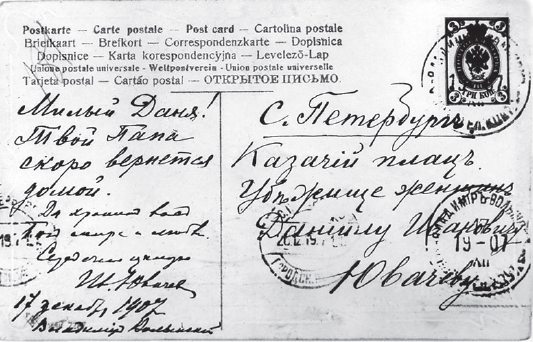 Postkarte — Carte postale — Post card — Cartolina postale
Briefkaart — Brefkort — Correspondenzkarte — Dopisnica
Dopisnice — Karta korespondencyjna — Levelező-Lap
Unione postale universale — Weltpostverein — Union postale universelle
Tarjeta postal — Cartão postal — ОТКРЫТОЕ ПИСЬМО.
Милый Даня!
Твой Папа
скоро вернется
домой.
Да хранит
17 декабр. 1907
Владимир Волынский
С. Петербургъ
Казачій плацъ
Убѣжище женщинъ
Даниилу Ивановичу
Ювачеву
3 3
ТРИ КОП.
19-07